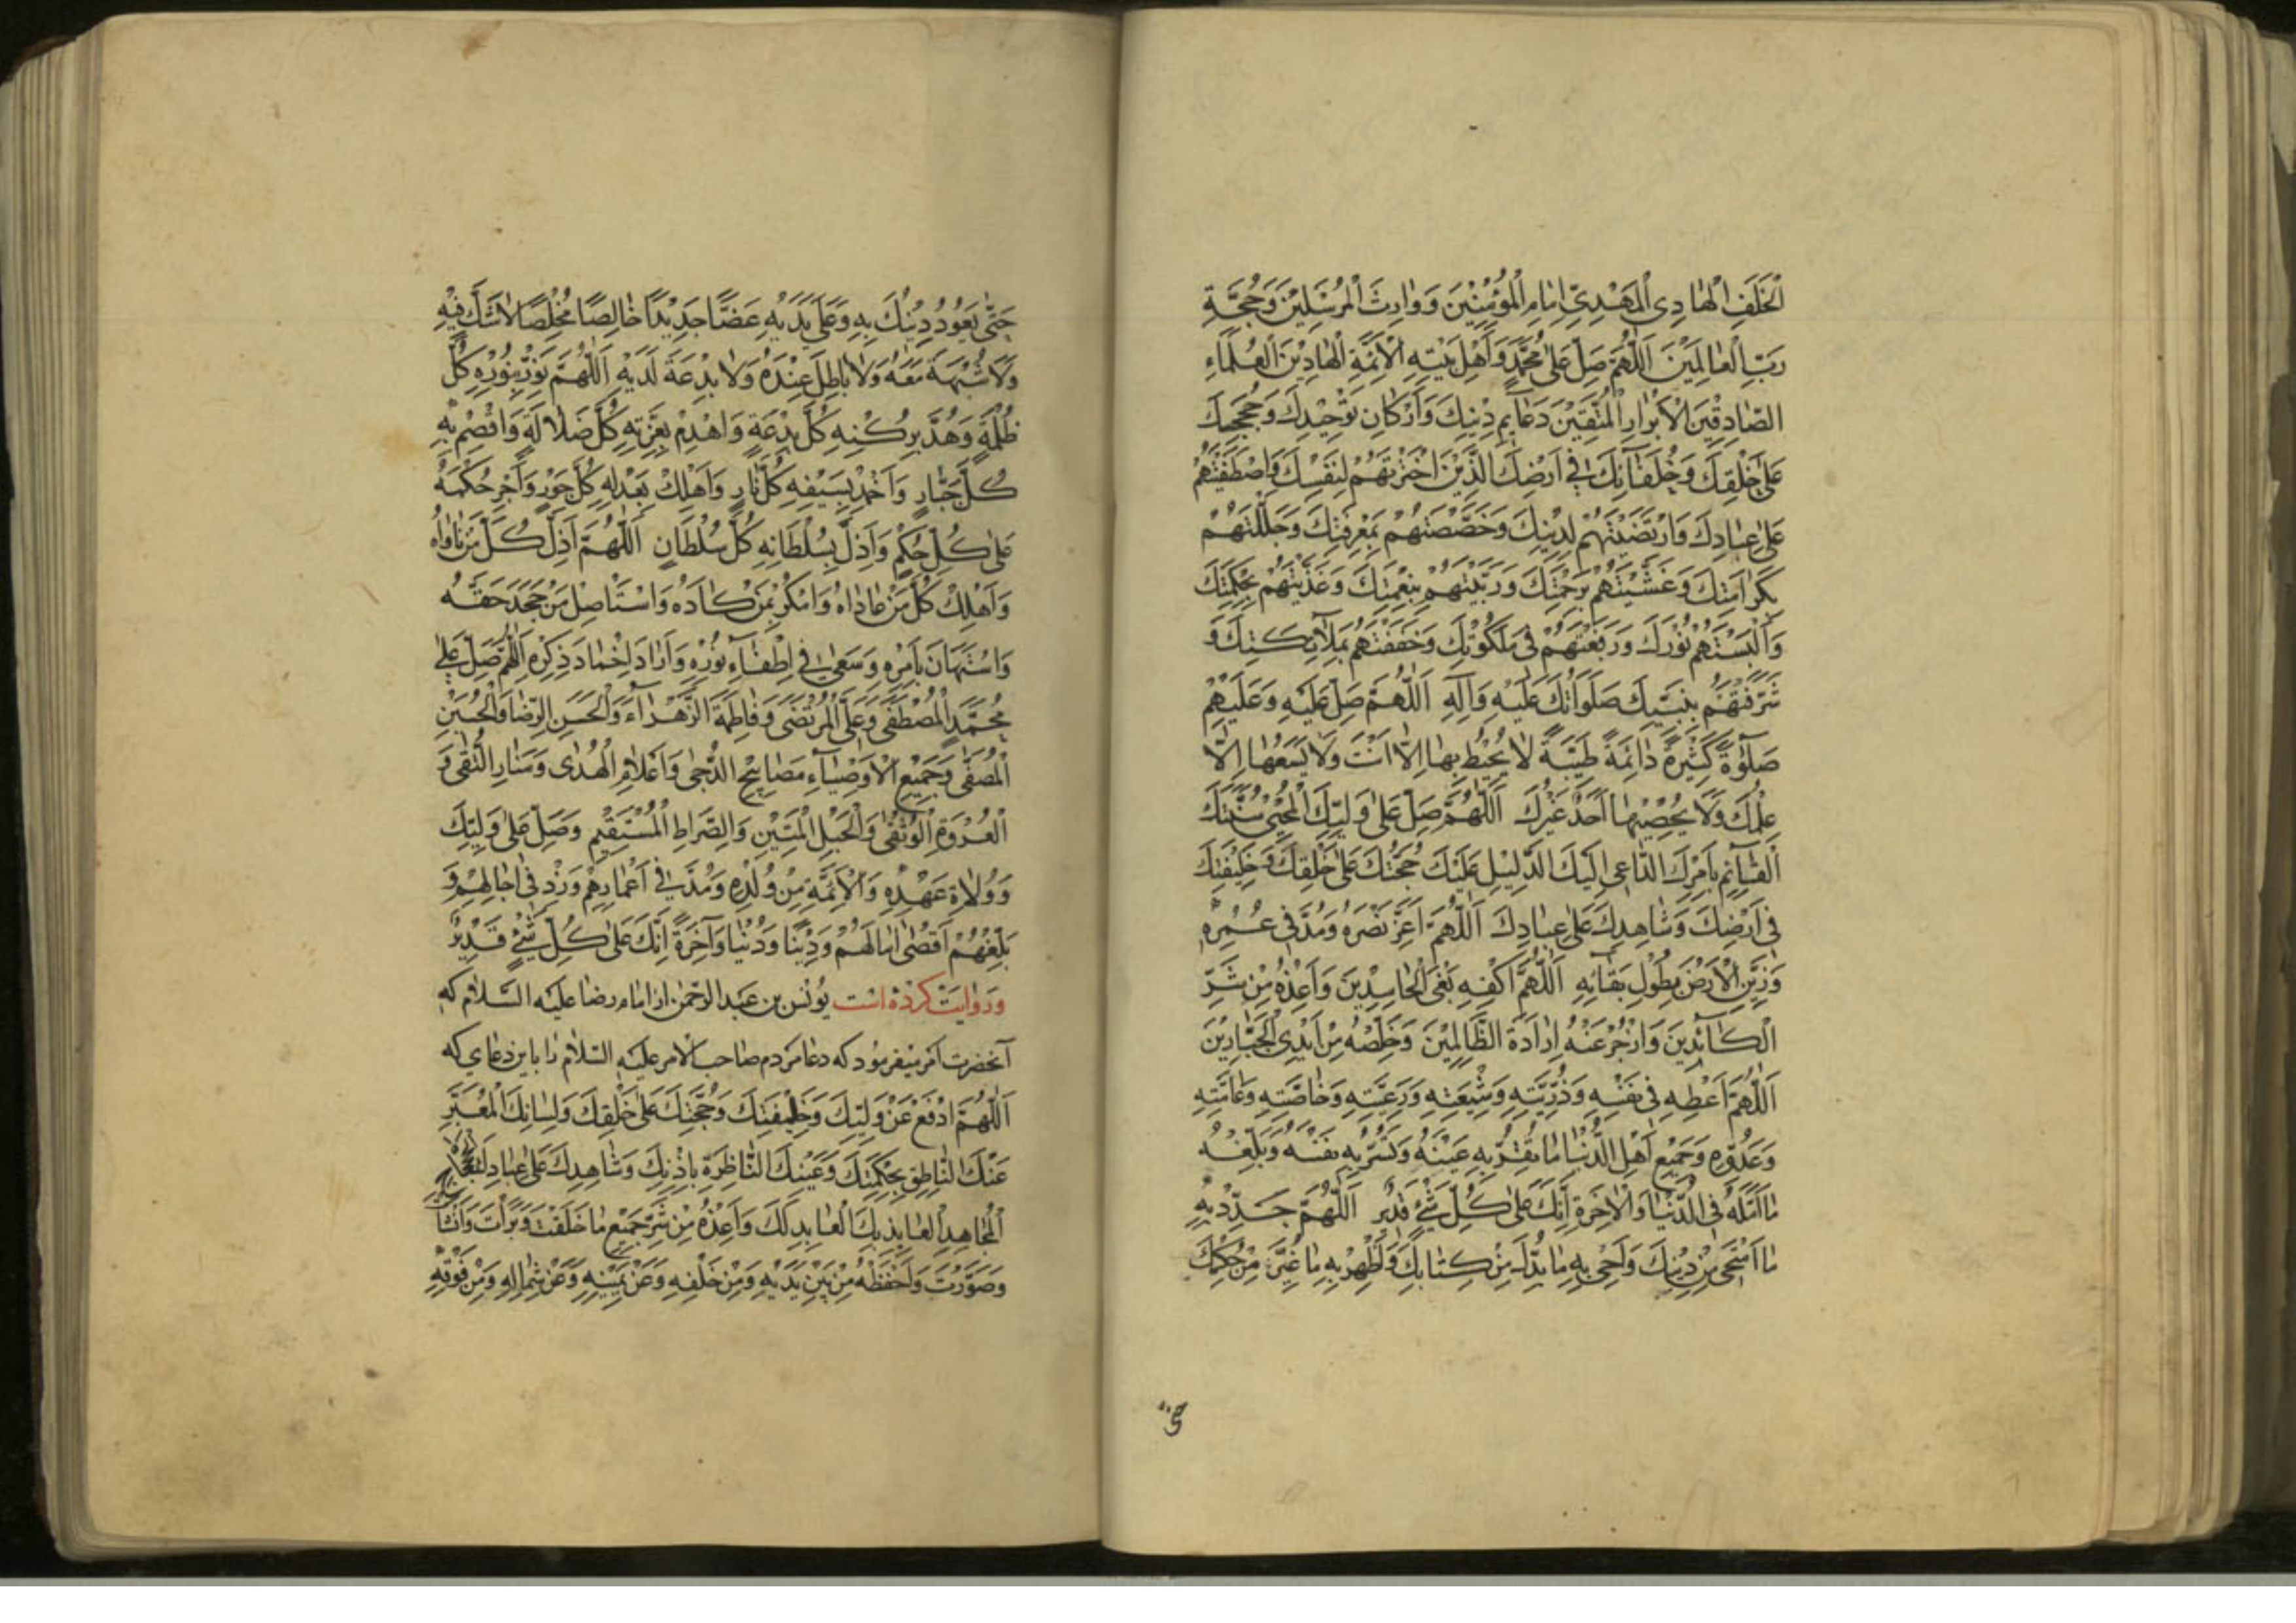 الْخَلَفِ الْهَادِى الْمَهْدِىِّ اِمَامِ الْمُؤْمِنِيْنَ وَوَارِثِ الْمُرْسَلِيْنَ وَحُجَّةِ
رَبِّ الْعَالَمِيْنَ اَللّٰهُمَّ صَلِّ عَلٰى مُحَمَّدٍ وَاَهْلِ بَيْتِهِ الْاَئِمَّةِ الْهَادِيْنَ الْعُلَمَاءِ
الصَّادِقِيْنَ الْاَبْرَارِ الْمُتَّقِيْنَ دَعَآيِمِ دِيْنِكَ وَاَرْكَانِ تَوْحِيْدِكَ وَحُجَجِكَ
عَلٰى خَلْقِكَ وَخُلَفَآئِكَ فِى اَرْضِكَ الَّذِيْنَ اخْتَرْتَهُمْ لِنَفْسِكَ وَاصْطَفَيْتَهُمْ
عَلٰى عِبَادِكَ وَارْتَضَيْتَهُمْ لِدِيْنِكَ وَخَصَصْتَهُمْ بِمَعْرِفَتِكَ وَجَلَّلْتَهُمْ
بِكَرَامَتِكَ وَغَشَّيْتَهُمْ بِرَحْمَتِكَ وَرَبَّيْتَهُمْ بِنِعْمَتِكَ وَغَذَّيْتَهُمْ بِحِكْمَتِكَ
وَاَلْبَسْتَهُمْ نُوْرَكَ وَرَفَعْتَهُمْ فِى مَلَكُوْتِكَ وَحَفَفْتَهُمْ بِمَلَآئِكَتِكَ وَ
شَرَّفْتَهُمْ بِنَبِيِّكَ صَلَوَاتُكَ عَلَيْهِ وَاٰلِهِ اَللّٰهُمَّ صَلِّ عَلَيْهِ وَعَلَيْهِمْ
صَلٰوةً كَثِيْرَةً دَائِمَةً طَيِّبَةً لَا يُحِيْطُ بِهَا اِلَّا اَنْتَ وَلَا يَسَعُهَا اِلَّا
عِلْمُكَ وَلَا يُحْصِيْهَا اَحَدٌ غَيْرُكَ اَللّٰهُمَّ صَلِّ عَلٰى وَلِيِّكَ الْمُحْيِى سُنَّتَكَ
الْقَآئِمِ بِاَمْرِكَ الدَّاعِى اِلَيْكَ الدَّلِيْلِ عَلَيْكَ حُجَّتِكَ عَلٰى خَلْقِكَ وَخَلِيْفَتِكَ
فِى اَرْضِكَ وَشَاهِدِكَ عَلٰى عِبَادِكَ اَللّٰهُمَّ اَعِزَّ نَصْرَهُ وَمُدَّ فِى عُمْرِهِ
وَزَيِّنِ الْاَرْضَ بِطُوْلِ بَقَآئِهِ اَللّٰهُمَّ اكْفِهِ بَغْىَ الْحَاسِدِيْنَ وَاَعِذْهُ مِنْ شَرِّ
الْكَآئِدِيْنَ وَازْجُرْ عَنْهُ اِرَادَةَ الظَّالِمِيْنَ وَخَلِّصْهُ مِنْ اَيْدِى الْجَبَّارِيْنَ
اَللّٰهُمَّ اَعْطِهِ فِى نَفْسِهِ وَذُرِّيَّتِهِ وَشِيْعَتِهِ وَرَعِيَّتِهِ وَخَاصَّتِهِ وَعَامَّتِهِ
وَعَدُوِّهِ وَجَمِيْعِ اَهْلِ الدُّنْيَا مَا تُقِرُّ بِهِ عَيْنَهُ وَتَسُرُّ بِهِ نَفْسَهُ وَبَلِّغْهُ
مَا اَمَّلَهُ فِى الدُّنْيَا وَالْاٰخِرَةِ اِنَّكَ عَلٰى كُلِّ شَىْءٍ قَدِيْرٌ اَللّٰهُمَّ جَدِّدْ بِهِ
مَا امْتَحٰى مِنْ دِيْنِكَ وَاَحْىِ بِهِ مَا بُدِّلَ مِنْ كِتَابِكَ وَاَظْهِرْ بِهِ مَا غُيِّرَ مِنْ حُكْمِكَ
حَتّٰى يَعُوْدَ دِيْنُكَ بِهِ وَعَلٰى يَدَيْهِ غَضًّا جَدِيْدًا خَالِصًا مُخْلَصًا لَا شَكَّ فِيْهِ
وَلَا شُبْهَةَ مَعَهُ وَلَا بَاطِلَ عِنْدَهُ وَلَا بِدْعَةَ لَدَيْهِ اَللّٰهُمَّ نَوِّرْ بِنُوْرِهِ كُلَّ
ظُلْمَةٍ وَهُدَّ بِرُكْنِهِ كُلَّ بِدْعَةٍ وَاهْدِمْ بِعِزَّتِهِ كُلَّ ضَلَالَةٍ وَاقْصِمْ بِهِ
كُلَّ جَبَّارٍ وَاَخْمِدْ بِسَيْفِهِ كُلَّ نَارٍ وَاَهْلِكْ بِعَدْلِهِ كُلَّ جَوْرٍ وَاَجْرِ حُكْمَهُ
عَلٰى كُلِّ حُكْمٍ وَاَذِلَّ بِسُلْطَانِهِ كُلَّ سُلْطَانٍ اَللّٰهُمَّ اَذِلَّ كُلَّ مَنْ نَاوَاهُ
وَاَهْلِكْ كُلَّ مَنْ عَادَاهُ وَامْكُرْ بِمَنْ كَادَهُ وَاسْتَاْصِلْ مَنْ جَحَدَ حَقَّهُ
وَاسْتَهَانَ بِاَمْرِهِ وَسَعٰى فِى اِطْفَآءِ نُوْرِهِ وَاَرَادَ اِخْمَادَ ذِكْرِهِ اَللّٰهُمَّ صَلِّ عَلٰى
مُحَمَّدٍ الْمُصْطَفٰى وَعَلِىٍّ الْمُرْتَضٰى وَفَاطِمَةَ الزَّهْرَآءِ وَالْحَسَنِ الرِّضَا وَالْحُسَيْنِ
الْمُصَفّٰى وَجَمِيْعِ الْاَوْصِيَآءِ مَصَابِيْحِ الدُّجٰى وَاَعْلَامِ الْهُدٰى وَمَنَارِ التُّقٰى وَ
الْعُرْوَةِ الْوُثْقٰى وَالْحَبْلِ الْمَتِيْنِ وَالصِّرَاطِ الْمُسْتَقِيْمِ وَصَلِّ عَلٰى وَلِيِّكَ
وَوُلَاةِ عَهْدِهِ وَالْاَئِمَّةِ مِنْ وُلْدِهِ وَمُدَّ فِى اَعْمَارِهِمْ وَزِدْ فِى اٰجَالِهِمْ وَ
بَلِّغْهُمْ اَقْصٰى اٰمَالِهِمْ وَدِيْنًا وَدُنْيَا وَاٰخِرَةً اِنَّكَ عَلٰى كُلِّ شَىْءٍ قَدِيْرٌ
وروایت کرده است یونس بن عبد الرحمن از امام رضا علیه السلام که
آنحضرت امر میفرمود که دعا مردم صاحب الامر علیه السلام را باین دعای که
اَللّٰهُمَّ ادْفَعْ عَنْ وَلِيِّكَ وَخَلِيْفَتِكَ وَحُجَّتِكَ عَلٰى خَلْقِكَ وَلِسَانِكَ الْمُعَبِّرِ
عَنْكَ النَّاطِقِ بِحِكْمَتِكَ وَعَيْنِكَ النَّاظِرَةِ بِاِذْنِكَ وَشَاهِدِكَ عَلٰى عِبَادِكَ
الْمُجَاهِدِ الْعَايِذِ بِكَ الْعَابِدِ لَكَ وَاَعِذْهُ مِنْ شَرِّ جَمِيْعِ مَا خَلَقْتَ وَبَرَأْتَ وَاَنْشَأْ
وَصَوَّرْتَ وَاحْفَظْهُ مِنْ بَيْنِ يَدَيْهِ وَمِنْ خَلْفِهِ وَعَنْ يَمِيْنِهِ وَعَنْ شِمَالِهِ وَمِنْ فَوْقِهِ